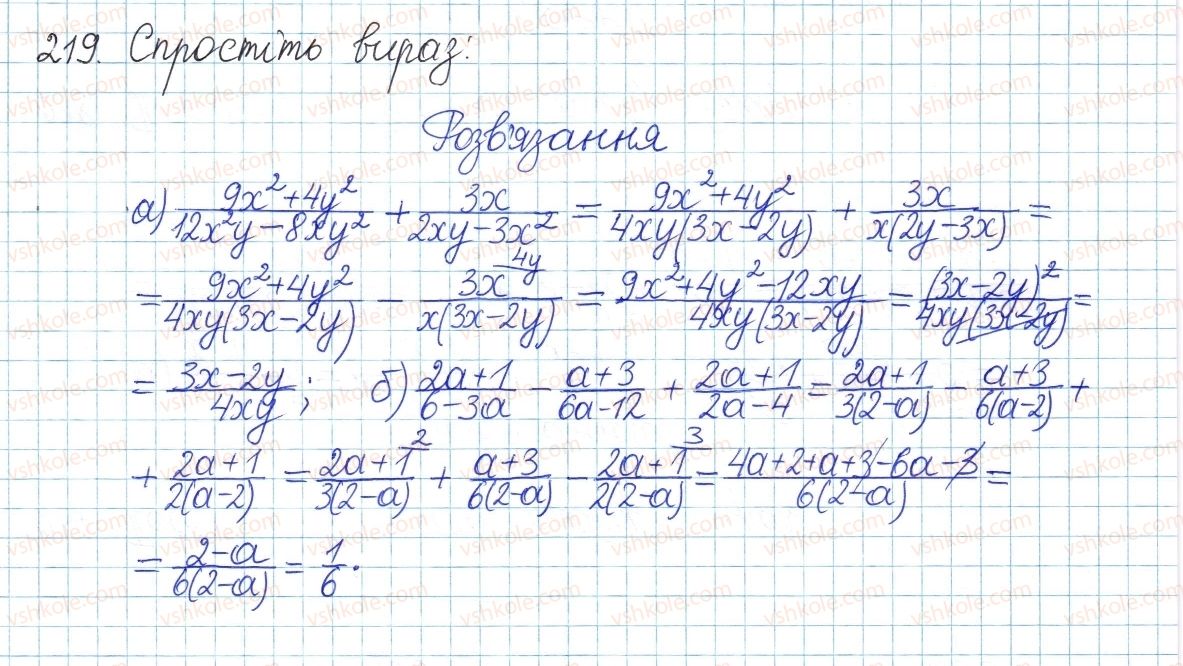 219. Спростіть вираз:
Розв'язання
а) (9x²+4y²)/(12x²y-8xy²) + 3x/(2xy-3x²) = (9x²+4y²)/(4xy(3x-2y)) + 3x/(x(2y-3x)) =
= (9x²+4y²)/(4xy(3x-2y)) - 3x^(4y)/(x(3x-2y)) = (9x²+4y²-12xy)/(4xy(3x-2y)) = (3x-2y)²/(4xy(3x-2y)) =
= (3x-2y)/(4xy); б) (2a+1)/(6-3a) - (a+3)/(6a-12) + (2a+1)/(2a-4) = (2a+1)/(3(2-a)) - (a+3)/(6(a-2)) +
+ (2a+1)/(2(a-2)) = (2a+1)^2/(3(2-a)) + (a+3)/(6(2-a)) - (2a+1)^3/(2(2-a)) = (4a+2+a+3-6a-3)/(6(2-a)) =
= (2-a)/(6(2-a)) = 1/6.
vshkole.com